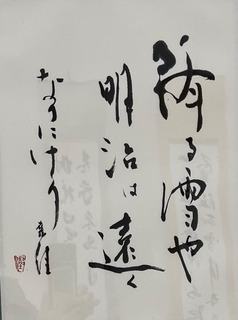 降る雪や
明治は遠く
なりにけり